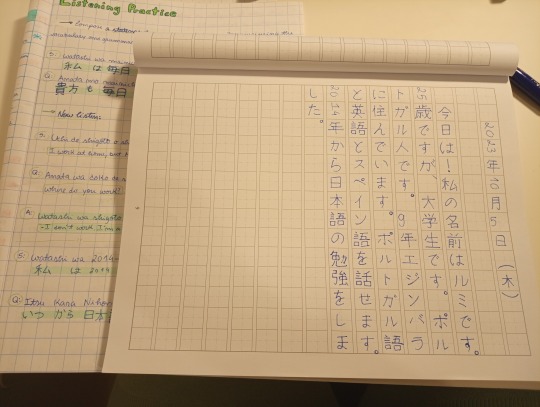 Listening Practice
S: Watashi wa
私 は 毎日
Q: Anata mo
貴方 も 毎日
→ Now listen:
I work at home, but
Q: Anata wa
where do you work?
A: Watashi wa shigoto
- I don't work I'm a
S: Watashi wa 2014
私 は 2014
Q: Itsu Kara
いつ から 日本
2023年10月5日(木)
今日は!私の名前はルミです。
25歳ですが、大学生です。ポル
トガル人です。9年エジンバラ
に住んでいます。ポルトガル語
と英語とスペイン語を話せます。
2014年から日本語の勉強をしま
した。